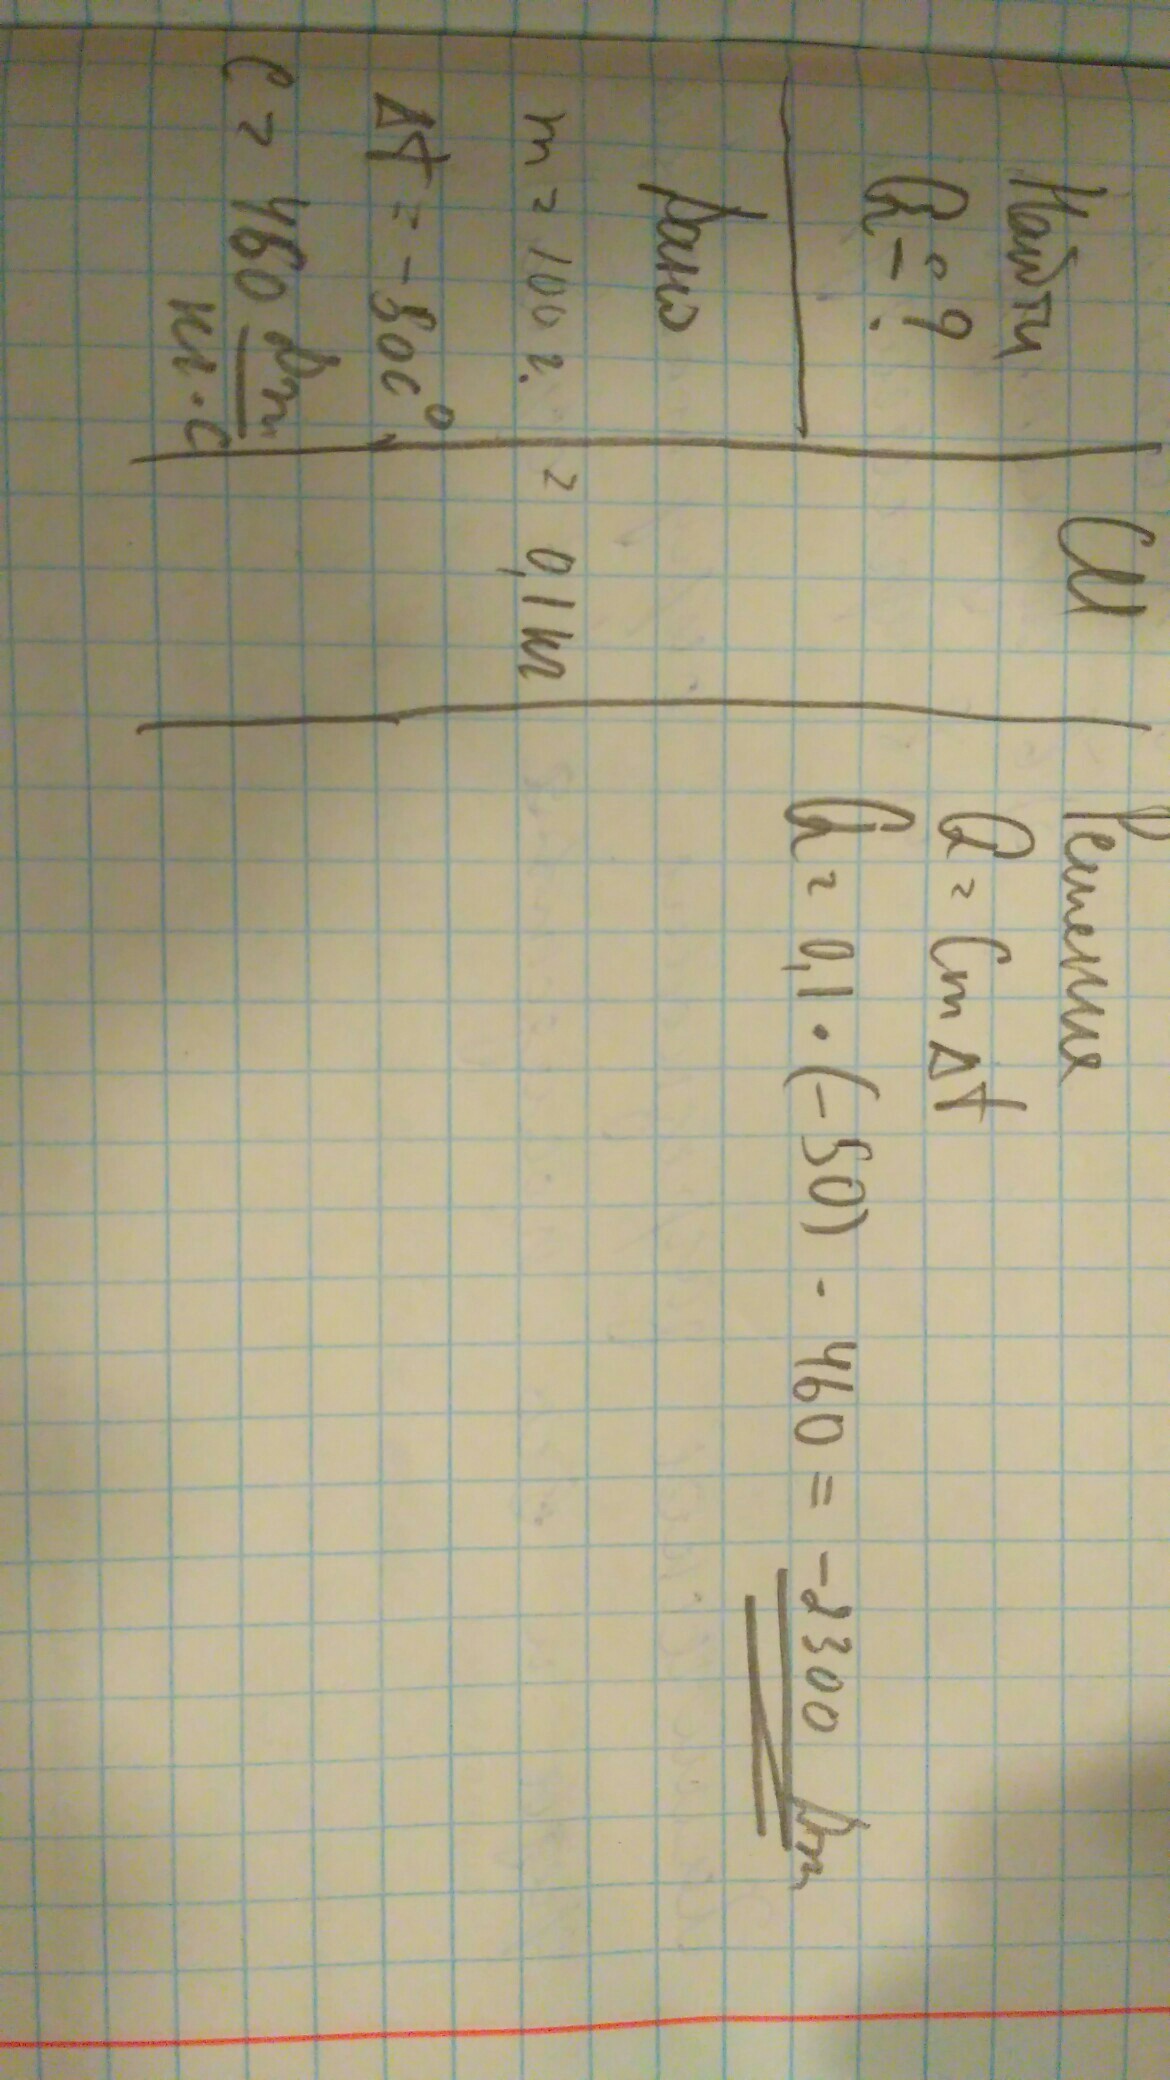 Найти
Q - ?
Дано
m = 100 г.
Δt = -50 c°
C = 460 Дж
кг·C
СИ
= 0,1 кг
Решение
Q = Cm Δt
Q = 0,1 · (-50) · 460 = -2300 Дж